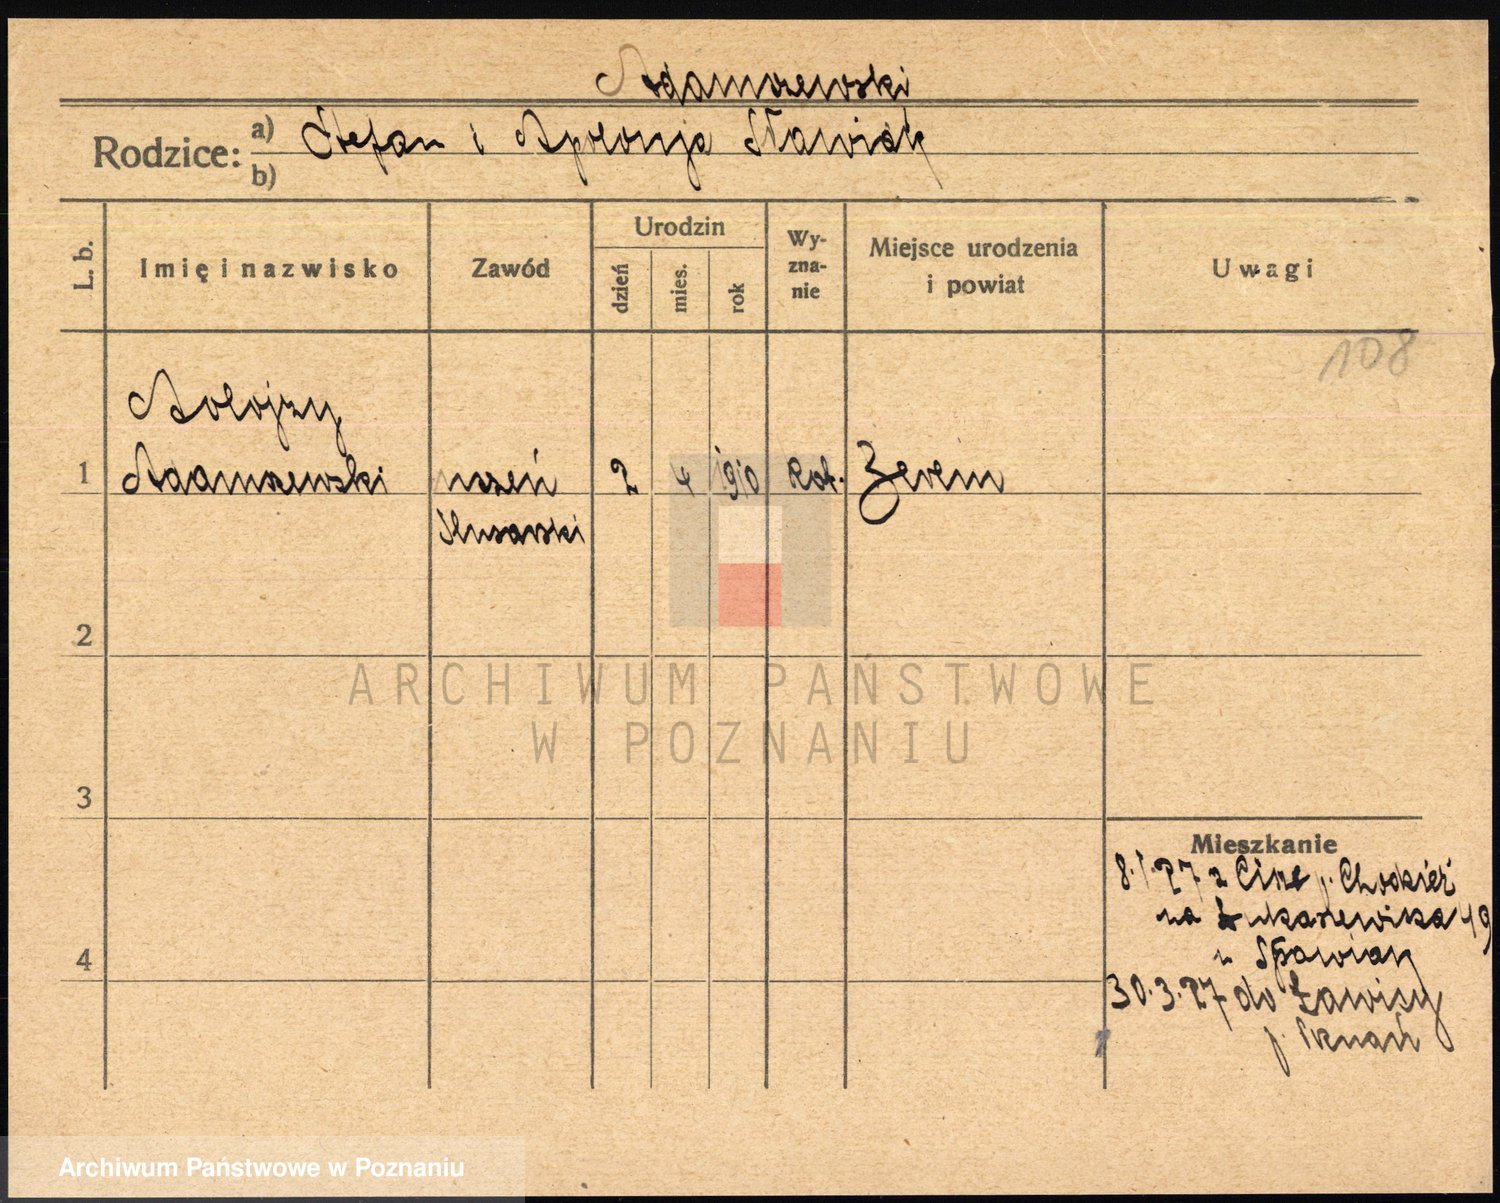 Adamszewski
Rodzice: a) Stefan i Apolonja Sławiak
b)
L. b.
Imię i nazwisko
Zawód
Urodzin
dzień
mies.
rok
Wy-
zna-
nie
Miejsce urodzenia
i powiat
Uwagi
108
Alojzy
1 Adamszewski uczeń 2 4 1910 kat.
ślusarski
2
3
4
Mieszkanie
8.1.27 z p. Chodzież
na Łukaszewicza 49
u Sławiak
30.3.27 do Ławicy
p. Poznań
ARCHIWUM PAŃSTWOWE
W POZNANIU
Archiwum Państwowe w Poznaniu